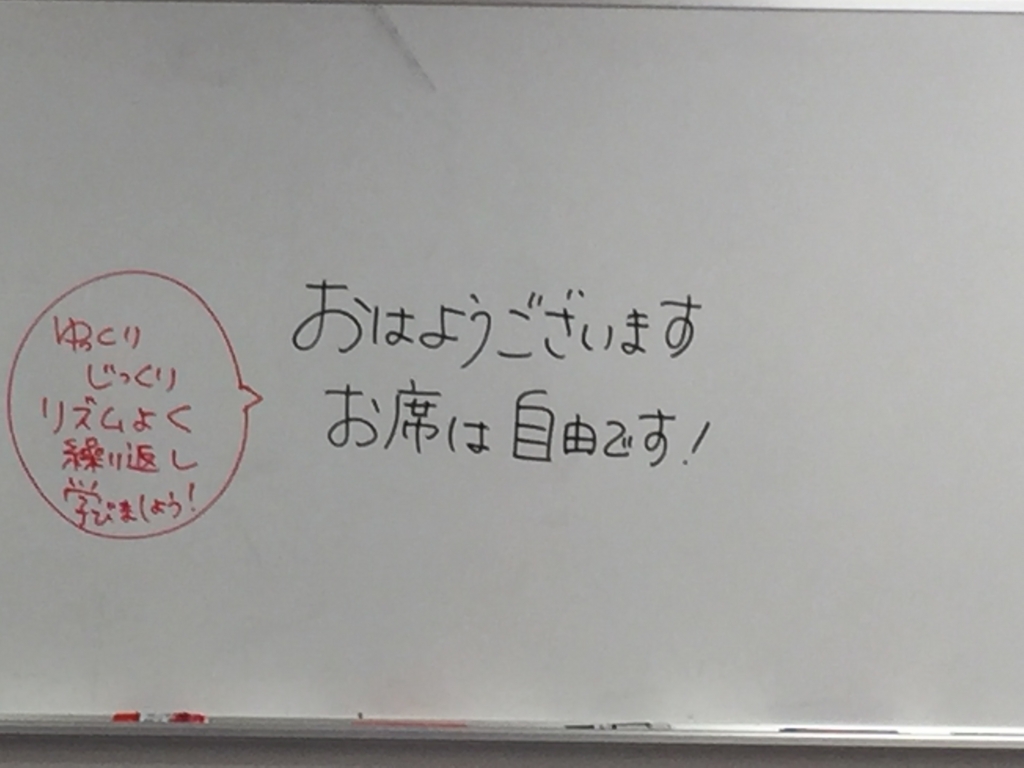 おはようございます
お席は自由です!
ゆっくり
じっくり
リズムよく
繰り返し
学びましょう!